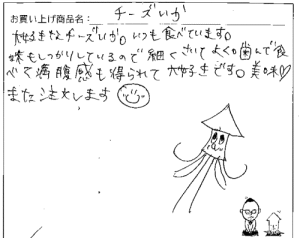 お買い上げ商品名: チーズいか
大好きなチーズいか。いつも食べています。
味もしっかりしているので細くさいてよく噛んで食
べて満腹感も得られて大好きです。美味♡
また注文します